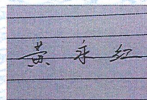 黄永红